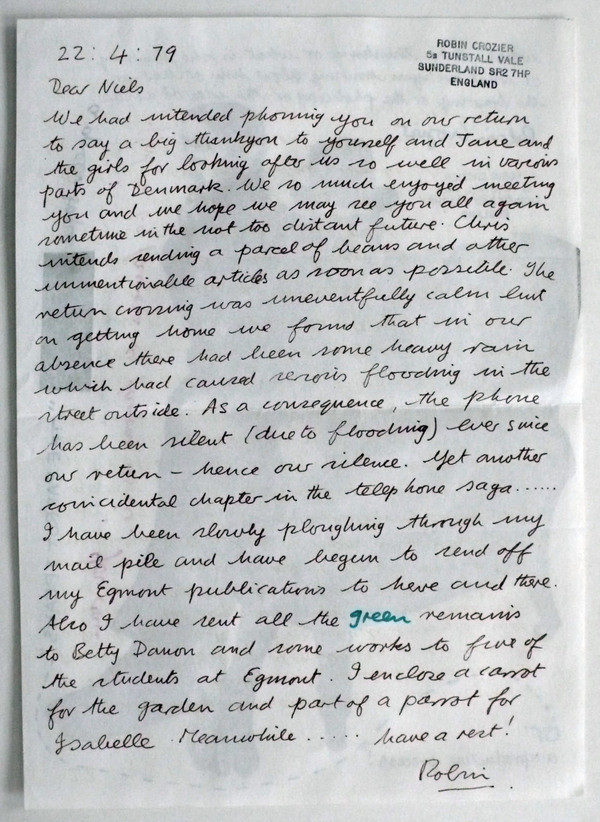 22:4:79
ROBIN CROZIER
5B TUNSTALL VALE
SUNDERLAND SR2 7HP
ENGLAND
Dear Niels
We had intended phoning you on our return
to say a big thankyou to yourself and Jane and
the girls for looking after us so well in various
parts of Denmark. We so much enjoyed meeting
you and we hope we may see you all again
sometime in the not too distant future. Chris
intends sending a parcel of beans and other
unmentionable articles as soon as possible. The
return crossing was uneventfully calm but
on getting home we found that in our
absence there had been some heavy rain
which had caused serious flooding in the
street outside. As a consequence, the phone
has been silent (due to flooding) ever since
our return – hence our silence. Yet another
coincidental chapter in the telephone saga......
I have been slowly ploughing through my
mail pile and have begun to send off
my Egmont publications to here and there.
Also I have sent all the green remains
to Betty Danon and some works to five of
the students at Egmont. I enclose a carrot
for the garden and part of a parrot for
Isabelle. Meanwhile ..... have a rest!
Robin